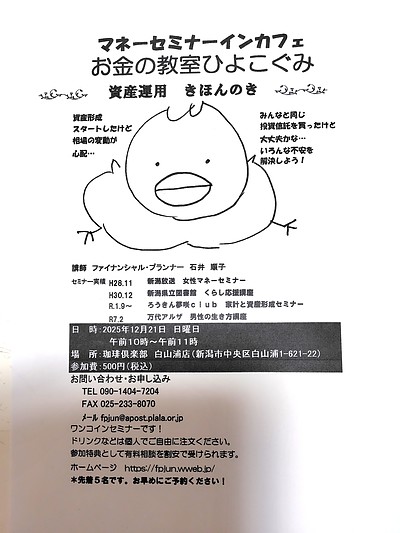 マネーセミナーインカフェ
お金の教室ひよこぐみ
資産運用 きほんのき
資産形成
スタートしたけど
相場の変動が
心配…
みんなと同じ
投資信託を買ったけど
大丈夫かな…
いろんな不安を
解決しよう！
講師 ファイナンシャル・プランナー 石井 順子
セミナー実績 H28.11 新潟放送 女性マネーセミナー
H30.12 新潟県立図書館 くらし応援講座
R.1.9～ ろうきん夢咲ｃｌｕｂ 家計と資産形成セミナー
R7.2 万代アルザ 男性の生き方講座
日 時:2025年12月21日 日曜日
午前10時～午前11時
場 所:珈琲倶楽部 白山浦店(新潟市中央区白山浦1-621-22)
参加費:500円(税込)
お問い合わせ・お申し込み
TEL 090-1404-7204
FAX 025-233-8070
メール fpjun@apost.plala.or.jp
ワンコインセミナーです！
ドリンクなどは個人でご自由に注文ください。
参加特典として有料相談を割安で受けられます。
ホームページ https://fpjun.wweb.jp/
＊先着５名です。お早めにご予約ください！